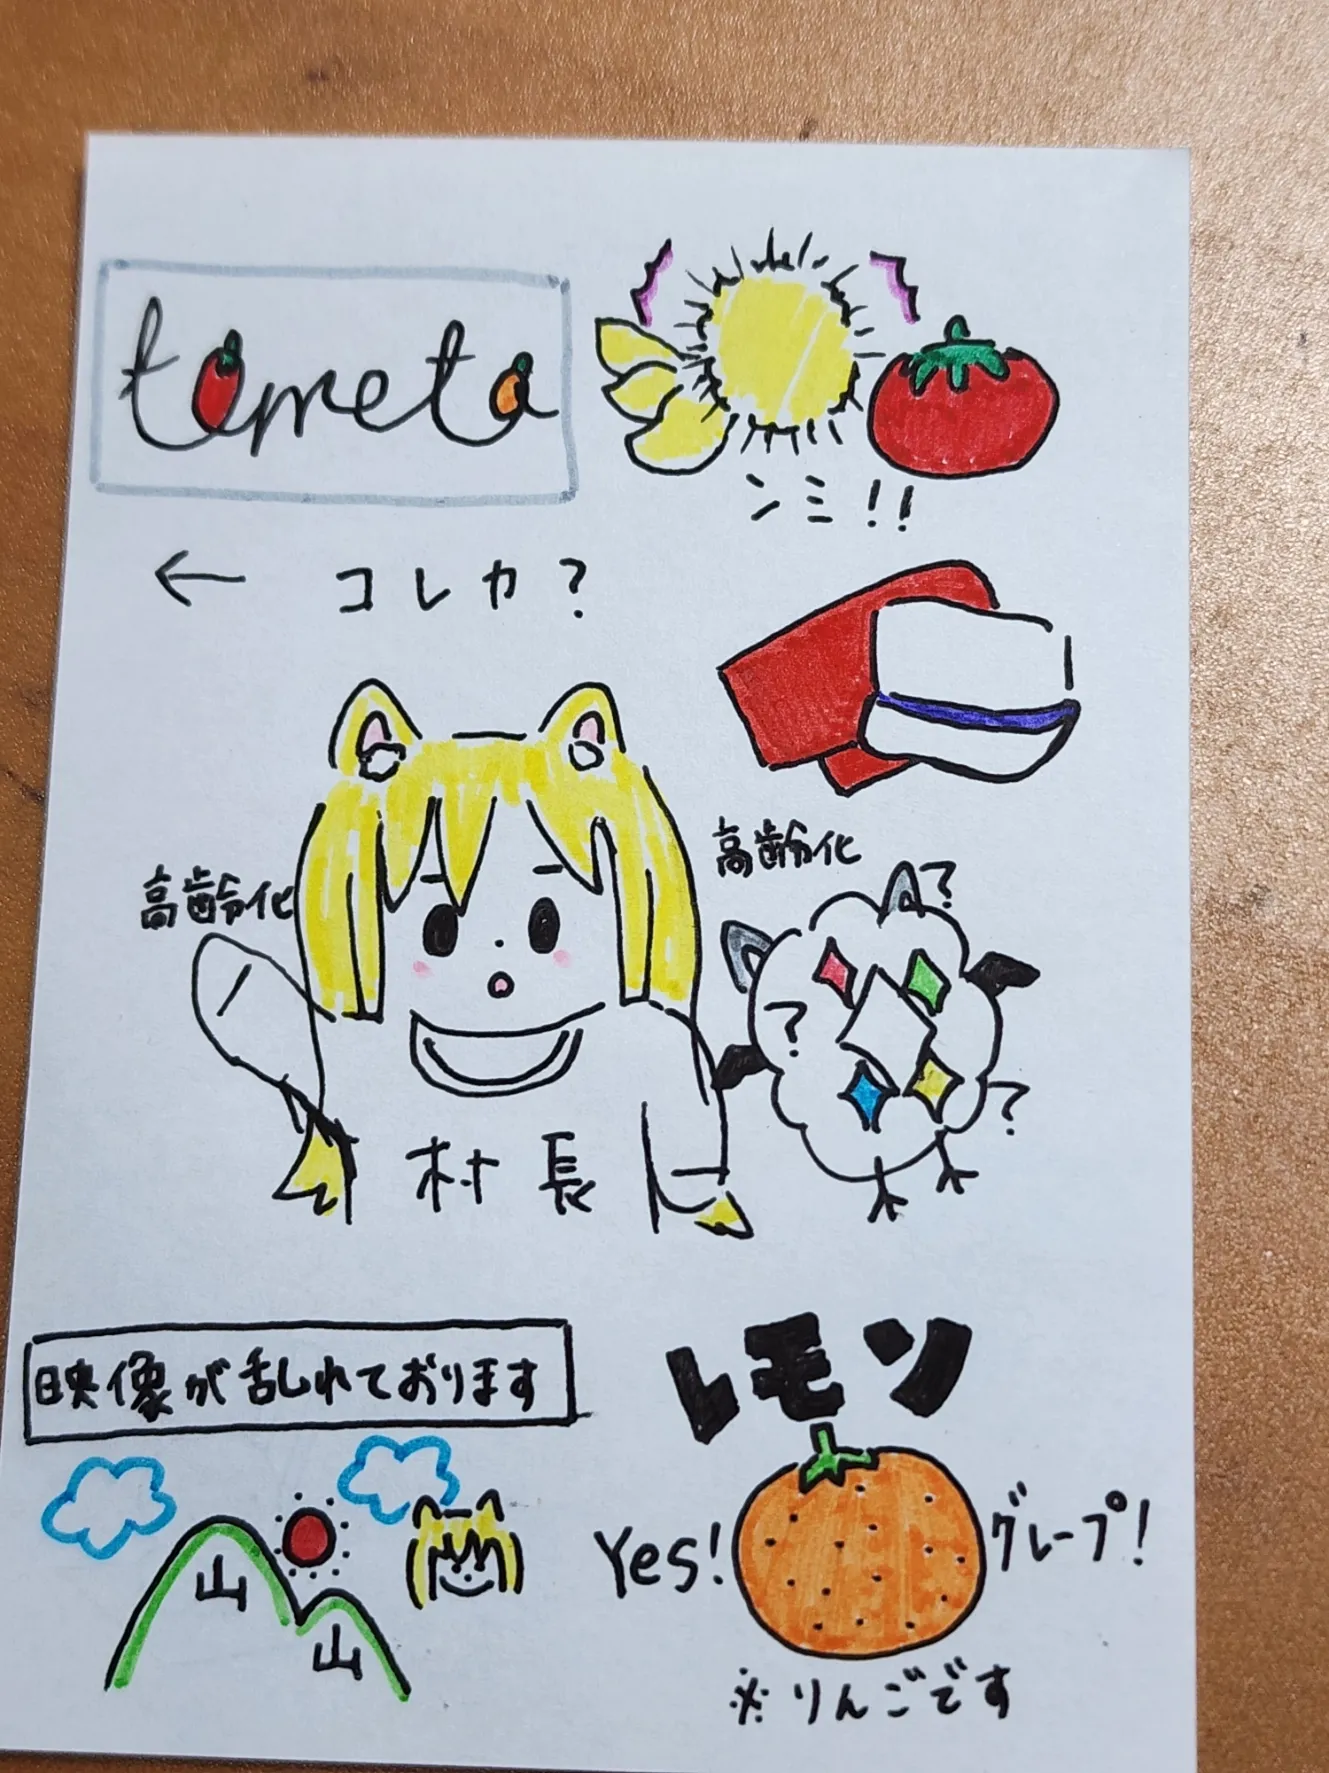 tometo
ンミ!!
← コレカ?
高齢化
高齢化
?
?
?
村長
映像が乱れております
山
山
レモン
Yes!
グレープ!
※りんごです